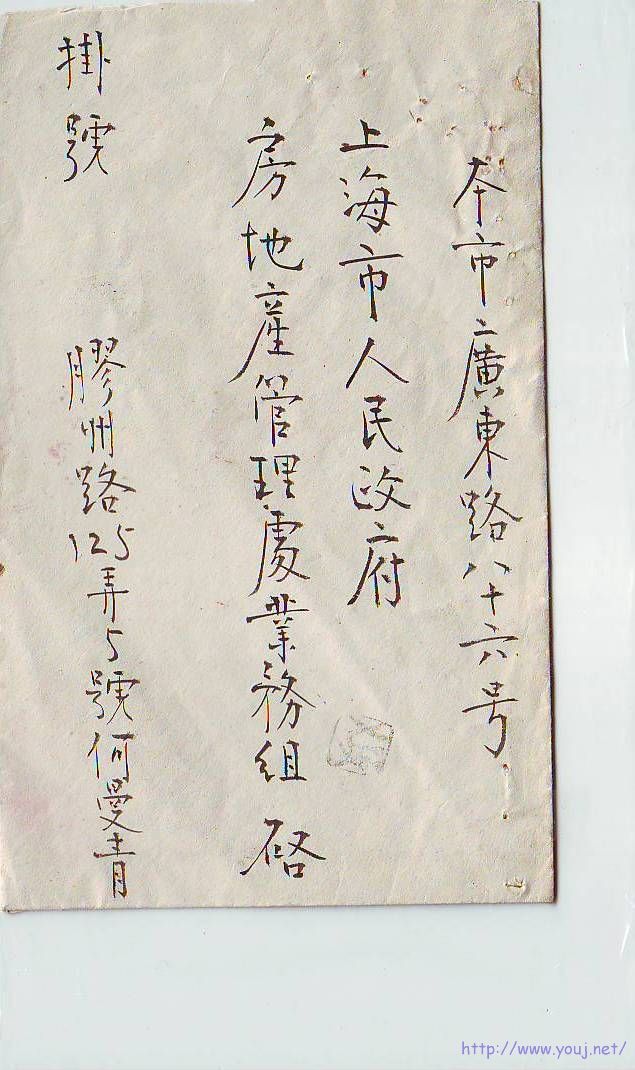 本市廣東路八十六号
上海市人民政府
房地產管理處業務組 啓
掛號
膠州路125弄5號何曼青
http://www.youj.net/